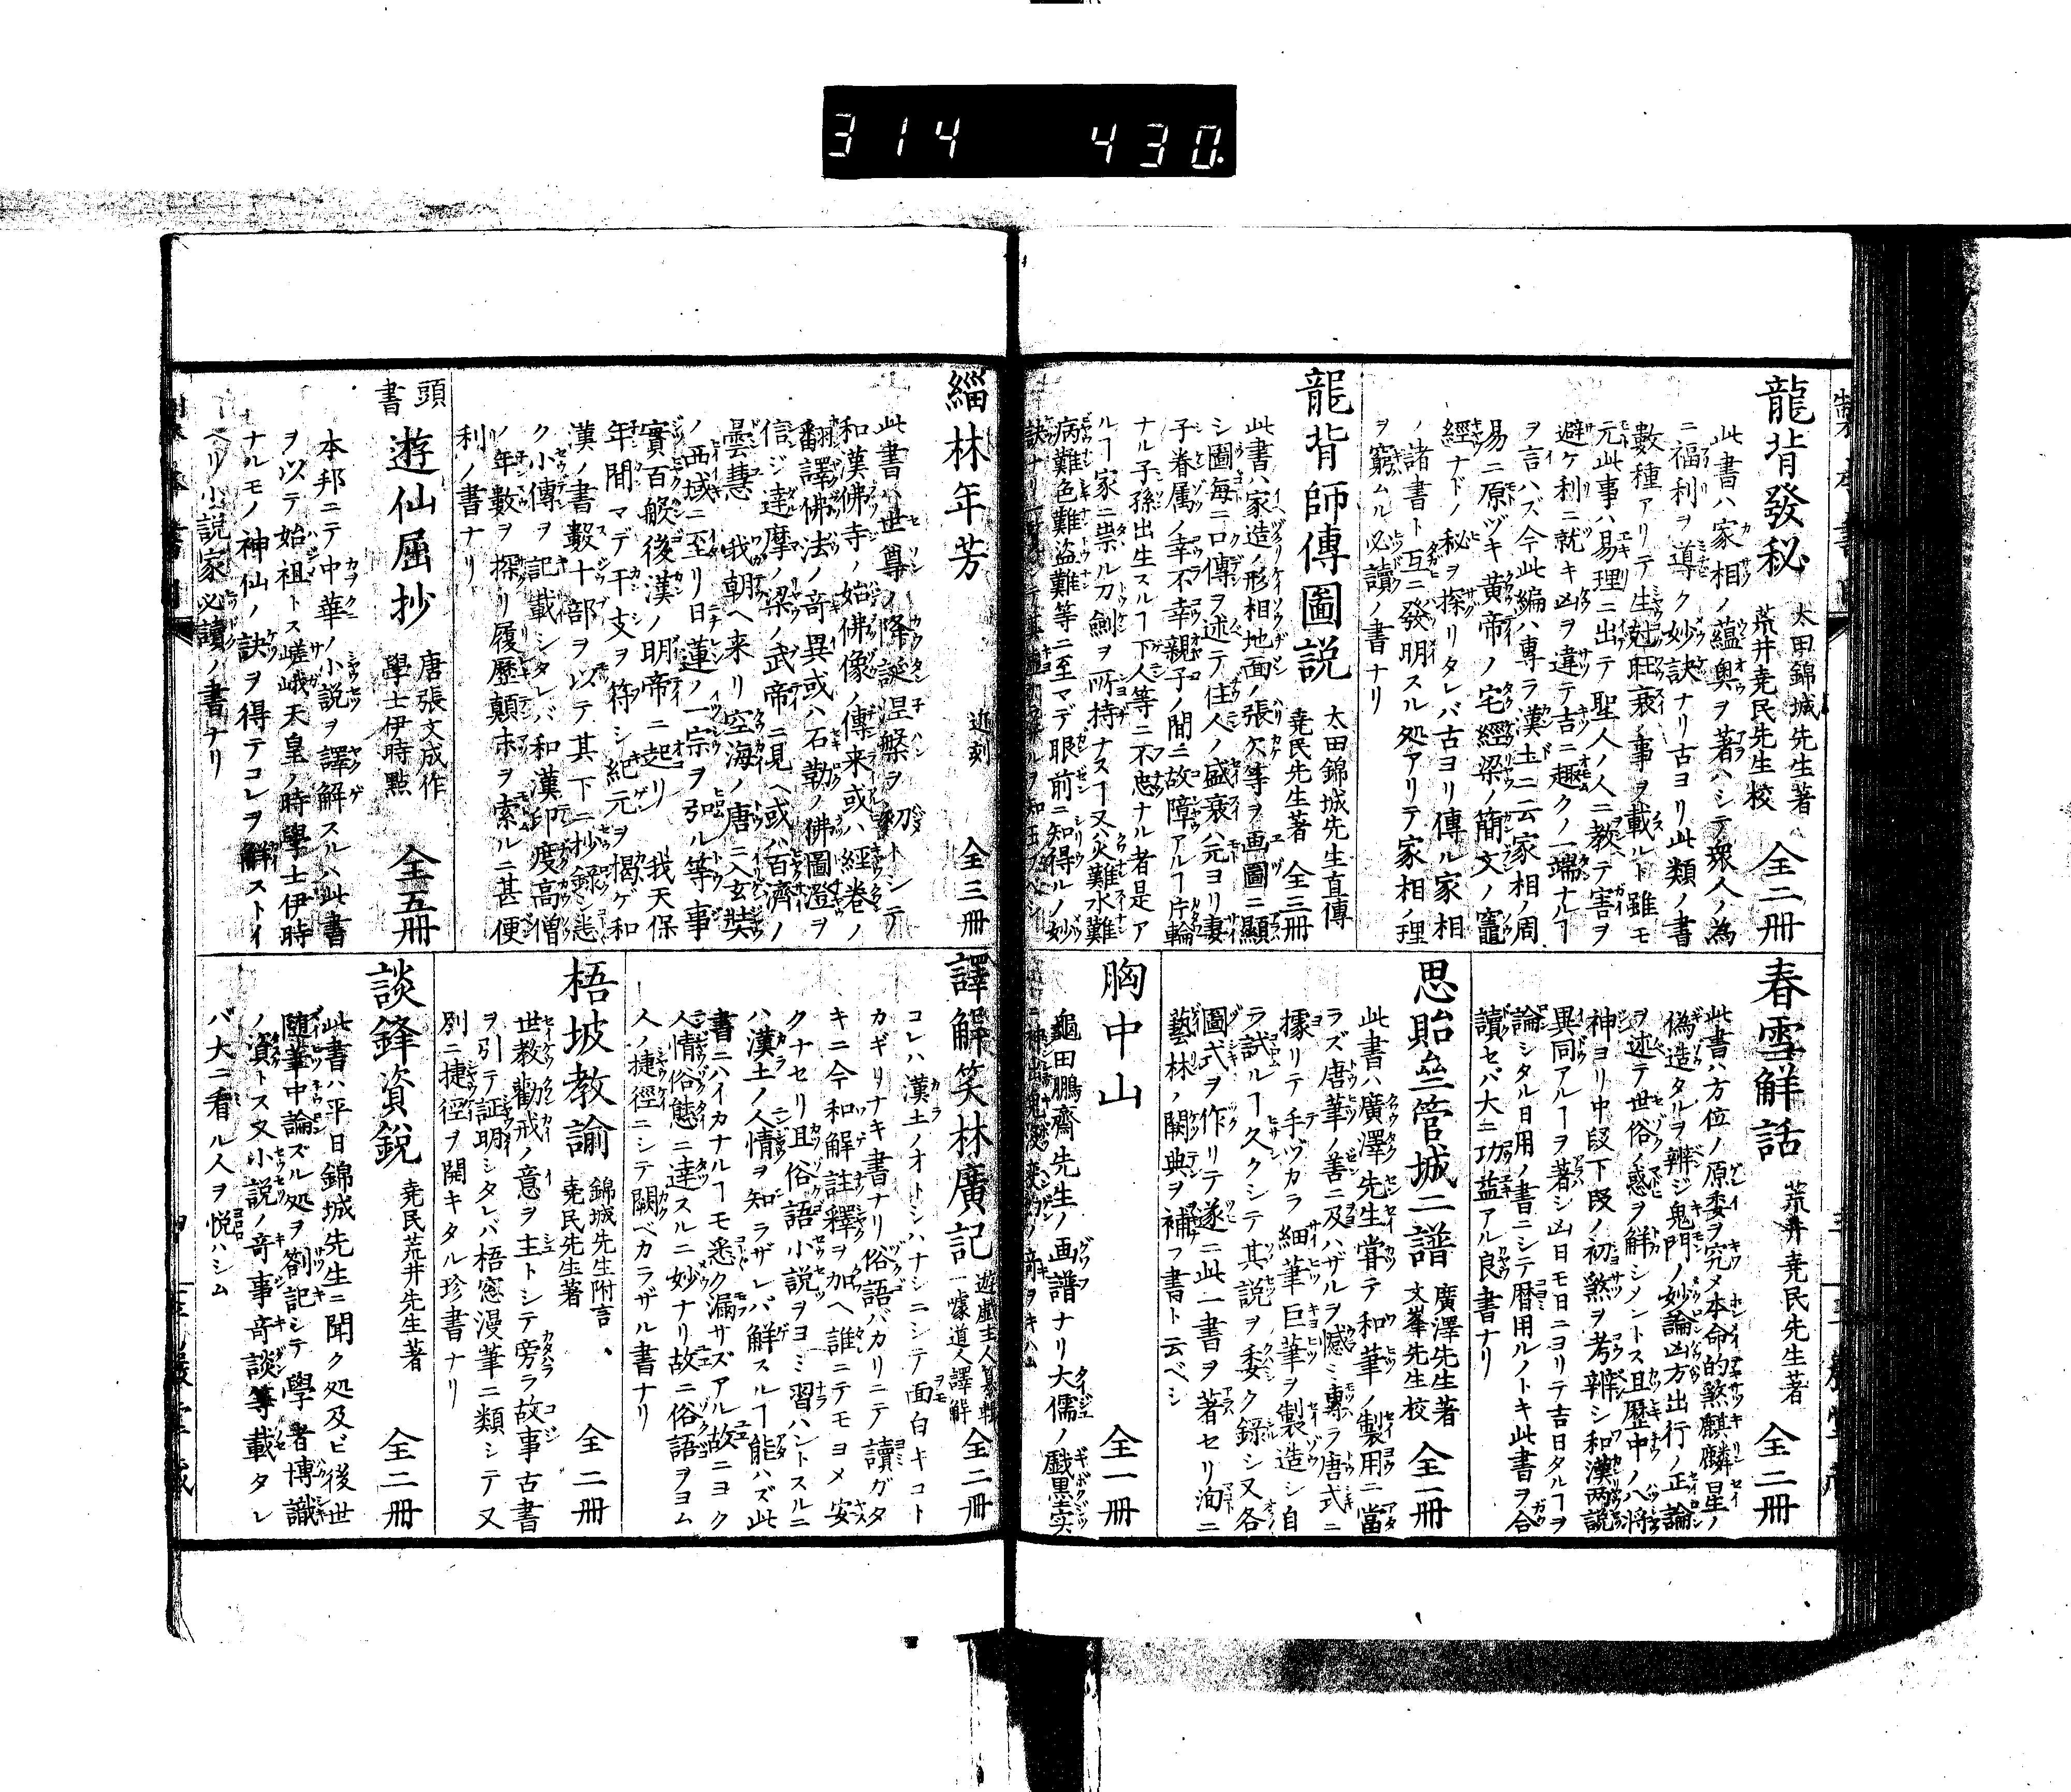 314 430
龍背發秘 太田錦城先生著 荒井堯民先生校 全二冊
此書ハ家相ノ蘊奥ヲ著ハシテ衆人ノ為
ニ福利ヲ導ク妙訣ナリ古ヨリ此類ノ書
數種アリテ生尅旺衰ノ事ヲ載ルト雖モ
元此事ハ易理ニ出テ聖人ノ人ニ教ヘテ害ヲ
避ケ利ニ就キ凶ヲ違テ吉ニ趣クノ一端ナルヿ
ヲ言ハズ今此編ハ專ラ漢土ニ云家相ノ周
易ニ原ヅキ黄帝ノ宅經梁ノ簡文ノ竈
經ナドノ秘ヲ探リタレバ古ヨリ傳ル家相
ノ諸書ト互ニ發明スル処アリテ家相ノ理
ヲ窮ムル必讀ノ書ナリ
龍背師傳圖説 太田錦城先生直傳 堯民先生著 全三冊
此書ハ家造ノ形相地面ノ張欠等ヲ画圖ニ顯
シ圖毎ニ口傳ヲ述テ住人ノ盛衰ハ元ヨリ妻
子眷属ノ幸不幸親子ノ間ニ故障アルヿ片輪
ナル子孫出生スルヿ下人等ニ不忠ナル者是ア
ルヿ家ニ祟ル刀劍ヲ所持ナスヿ又火難水難
病難色難盗難等ニ至マデ眼前ニ知得ルノ妙
春雪解話 荒井堯民先生著 全二冊
此書ハ方位ノ原委ヲ究メ本命的煞麒麟星ノ
偽造タルヲ辨ジ鬼門ノ妙論凶方出行ノ正論
ヲ述テ世俗ノ惑ヲ解シメントス且歴中ノ八将
神ヨリ中段下段ノ初煞ヲ考辨シ和漢両説
異同アルヿヲ著シ凶日モ日ニヨリテ吉日タルヿヲ
論シタル日用ノ書ニシテ暦用ルノトキ此書ヲ合
讀セバ大ニ功益アル良書ナリ
思貽堂管城二譜 廣澤先生著 文峯先生校 全一冊
此書ハ廣澤先生甞テ和筆ノ製用ニ當
ラズ唐筆ノ善ニ及ハザルヲ憾ミ專ラ唐式ニ
據リテ手ヅカラ細筆巨筆ヲ製造シ自
ラ試ルヿ久クシテ其説ヲ委ク録シ又各
圖式ヲ作リテ遂ニ此一書ヲ著セリ洵ニ
藝林ノ闕典ヲ補フ書ト云ベシ
胸中山 全一冊
龜田鵬齋先生ノ画譜ナリ大儒ノ戯墨実
緇林年芳 近刻 全三冊
此書ハ世尊ノ降誕涅槃ヲ初トシテ
和漢佛寺ノ始佛像ノ傳来或ハ經巻ノ
翻譯佛法ノ奇異或ハ石勒ノ佛圖澄ヲ
信ジ達摩ノ梁ノ武帝ニ見ヘ或ハ百濟ノ
曇慧我朝ヘ来リ空海ノ唐ニ入玄奘
ノ西域ニ至リ日蓮ノ一宗ヲ弘ル等事
實百般後漢ノ明帝ニ起リ我天保
年間マデ干支ヲ符シ紀元ヲ掲ケ和
漢ノ書數十部ヲ以テ其下ニ抄録シ悉
ク小傳ヲ記載シタレバ和漢印度高僧
ノ年數ヲ探リ履歴顛末ヲ索ルニ甚便
利ノ書ナリ
頭書 遊仙屈抄 唐張文成作 學士伊時點 全五冊
本邦ニテ中華ノ小説ヲ譯解スルハ此書
ヲ以テ始祖トス嵯峨天皇ノ時學士伊時
ナルモノ神仙ノ訣ヲ得テコレヲ解ストイ
ヘリ小説家必讀ノ書ナリ
譯解笑林廣記 遊戯主人纂輯 一嚎道人譯解 全二冊
コレハ漢土ノオトシハナシニシテ面白キコト
カギリナキ書ナリ俗語バカリニテ讀ガタ
キニ今和解註釋ヲ加ヘ誰ニテモヨメ安
クナセリ且俗語小説ヲヨミ習ハントスルニ
ハ漢土ノ人情ヲ知ラザレバ解スルヿ能ハズ此
書ニハイカナルヿモ悉ク漏サズアル故ニヨク
人情俗態ニ達スルニ妙ナリ故ニ俗語ヲヨム
人ノ捷徑ニシテ闕ベカラザル書ナリ
梧坡教諭 錦城先生附言 堯民先生著 全二冊
世教勸戒ノ意ヲ主トシテ旁ラ故事古書
ヲ引テ証明シタレバ梧窓漫筆ニ類シテ又
別ニ捷徑ヲ開キタル珍書ナリ
談鋒資鋭 堯民荒井先生著 全二冊
此書ハ平日錦城先生ニ聞ク処及ビ後世
随筆中論ズル処ヲ劄記シテ學者博識
ノ資トス又小説ノ奇事奇談等載タレ
バ大ニ看ル人ヲ悦ハシム